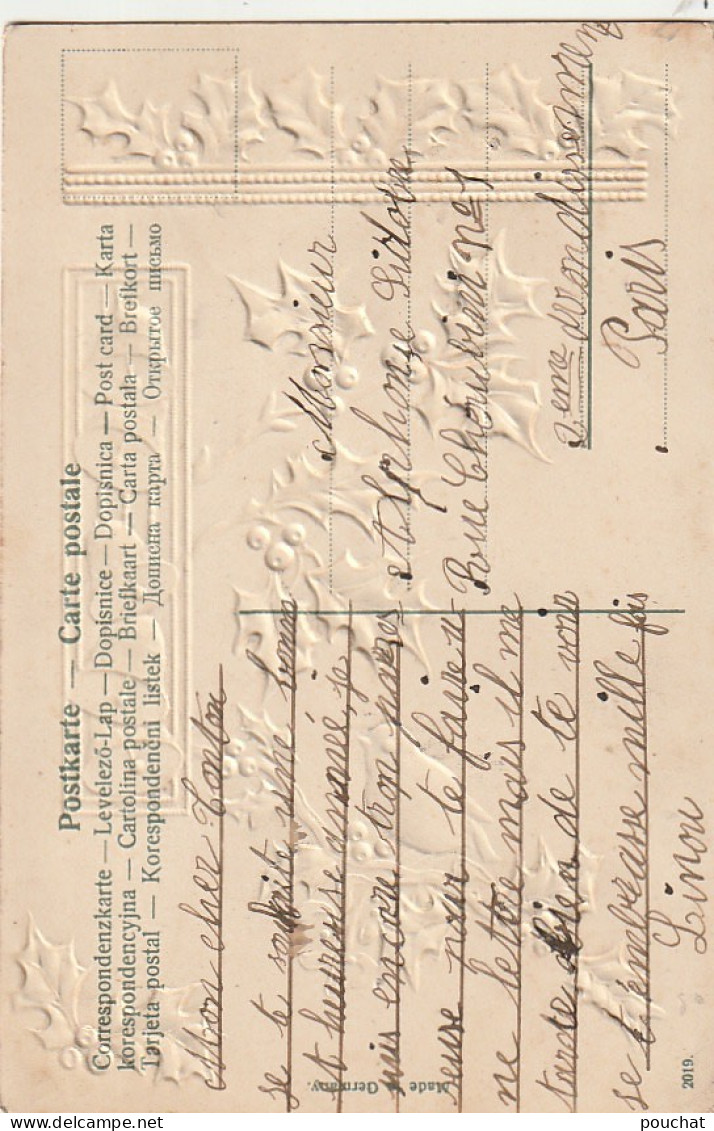 Postkarte — Carte postale
Correspondenzkarte — Levelező-Lap — Dopisnice — Dopisnica — Post card — Karta
korespondencyjna — Cartolina postale — Briefkaart — Carta postala — Brefkort —
Tarjeta postal — Korespondenční listek — Дописна карта — Открытое письмо
Mon cher Tonton
se te souhaite une bonn
t heureuse année, je
suis encore tron parezes
seuse pour te faire u
ne lettre mais il me
tarde bien de te voir
se t'embrasse mille fois
Linou
Monsieur
Alphonse
Rue Cherubini no 1
2eme arrondissement
Paris
Made in Germany.
2019.
pouchat